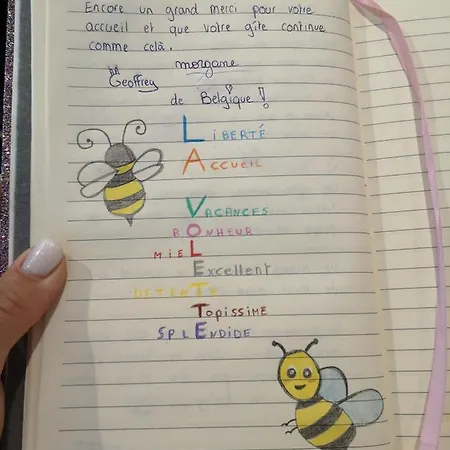 Encore un grand merci pour votre
accueil et que votre gîte continue
comme celà.
Geoffrey morgane
de Belgique !
LIBERTÉ
ACCUEIL
VACANCES
BONHEUR
MIEL
Excellent
DETENTE
TOPISSIME
SPLENDIDE